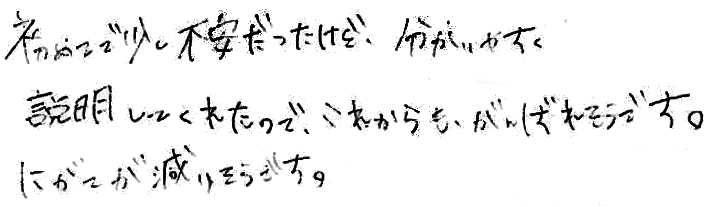 初めてで少し不安だったけど、分かりやすく
説明してくれたので、これからも、がんばれそうです。
にがてが減りそうです。